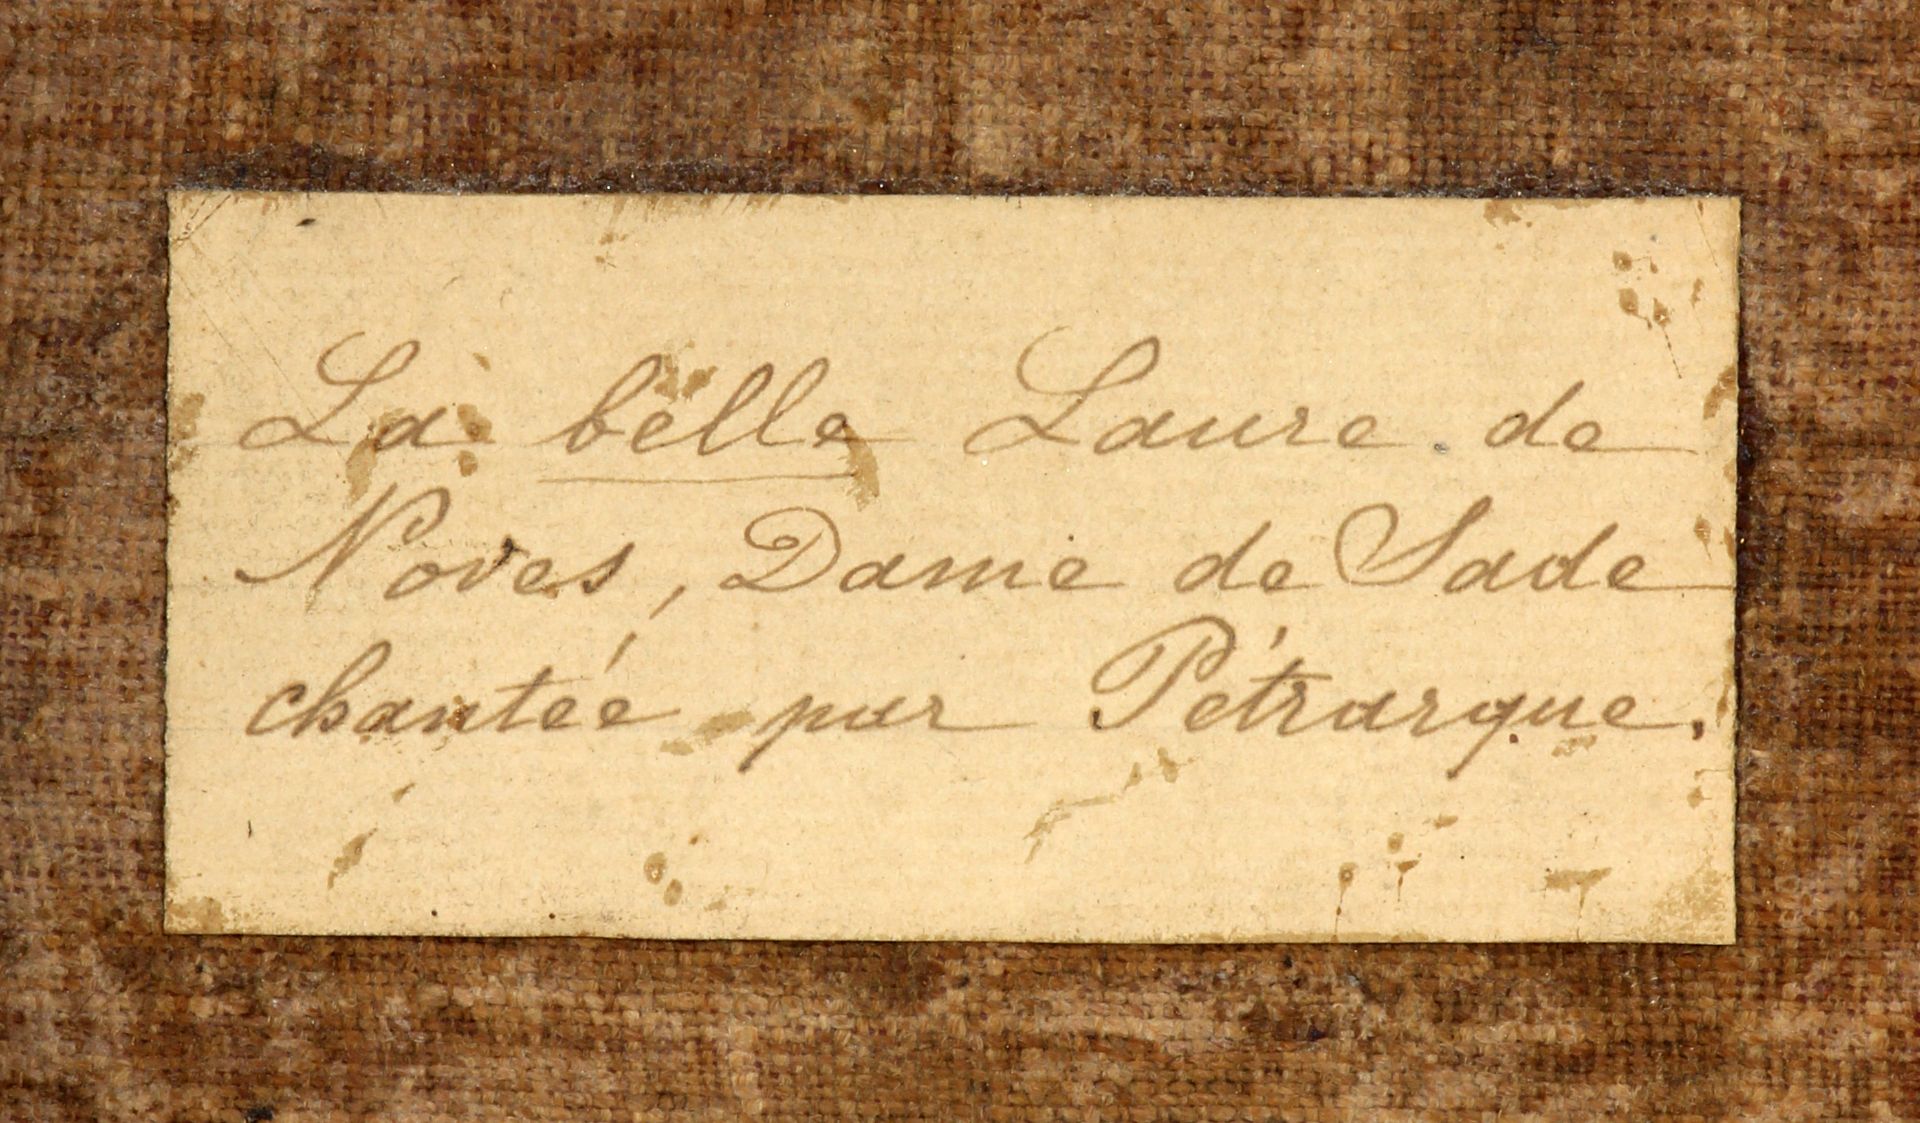 La belle Laure de
Noves, Dame de Sade
chantée par Pétrarque.